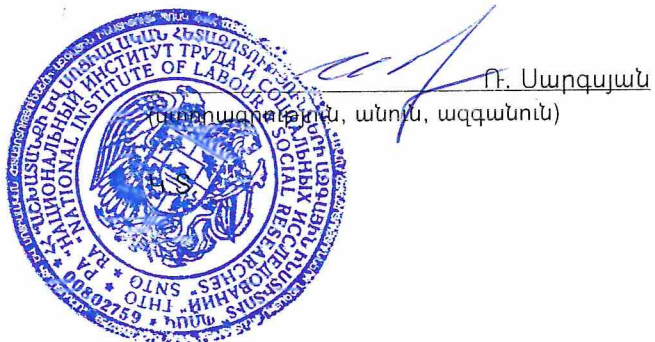 Ռ. Սարգսյան
(ստորագրություն, անուն, ազգանուն)
Կ.Տ.
РА "НАЦИОНАЛЬНЫЙ ИНСТИТУТ ТРУДА И СОЦИАЛЬНЫХ ИССЛЕДОВАНИЙ" ГНТО
RA "NATIONAL INSTITUTE OF LABOUR & SOCIAL RESEARCHES" SNTO
00802759